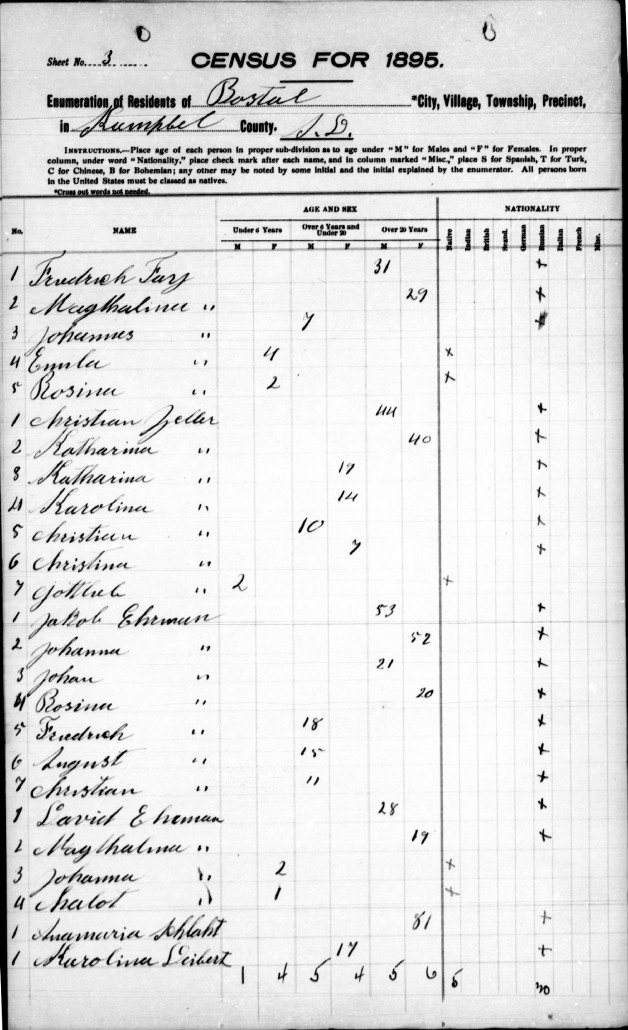 Sheet No. 3
CENSUS FOR 1895.
Enumeration of Residents of Bostal *City, Village, Township, Precinct,
in Kampbel County. S. D.
INSTRUCTIONS.—Place age of each person in proper sub-division as to age under "M" for Males and "F" for Females. In proper
column, under word "Nationality," place check mark after each name, and in column marked "Misc.," place S for Spanish, T for Turk,
C for Chinese, B for Bohemian; any other may be noted by some initial and the initial explained by the enumerator. All persons born
in the United States must be classed as natives.
*Cross out words not needed.
AGE AND SEX NATIONALITY
No. NAME Under 6 Years Over 6 Years and Under 20 Over 20 Years Native Indian British Scand. German Russian Italian French Misc.
M F M F M F
1 Fredrich Fay 31 +
2 Magthalina " 29 +
3 Johannes " 7 +
4 Emila " 4 +
5 Rosina " 2 +
1 Christian Zeller 44 +
2 Katharina " 40 +
3 Katharina " 17 +
4 Karolina " 14 +
5 Christian " 10 +
6 Christina " 7 +
7 Gottlieb " 2 +
1 Jakob Ehrman 53 +
2 Johanna " 52 +
3 Johan " 21 +
4 Rosina " 20 +
5 Fredrich " 18 +
6 August " 15 +
7 Christian " 11 +
1 David Ehrman 28 +
2 Magthalina " 19 +
3 Johanna " 2 +
4 " 1 +
1 Anamaria Schlaht 81 +
1 Karolina Leibert 17 +
1 4 5 4 5 6 5 20